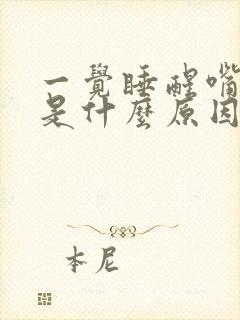 一覺睡醒嘴
是什麼原因
本尼